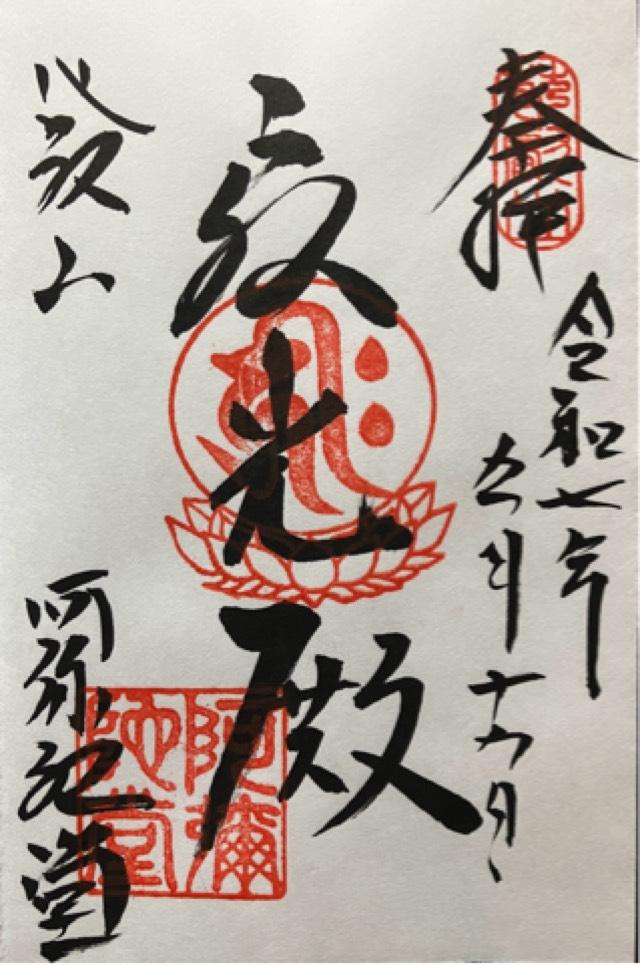 奉拝
令和七年
五月十 日
寂光殿
比叡山
阿弥陀堂
阿彌
陀堂